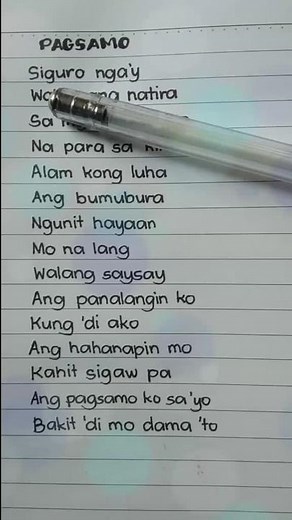 PAGSAMO
Siguro nga'y
natira
Sa
Na para sa
Alam kong luha
Ang bumubura
Ngunit hayaan
Mo na lang
Walang saysay
Ang panalangin ko
Kung 'di ako
Ang hahanapin mo
Kahit sigaw pa
Ang pagsamo ko sa'yo
Bakit 'di mo dama 'to